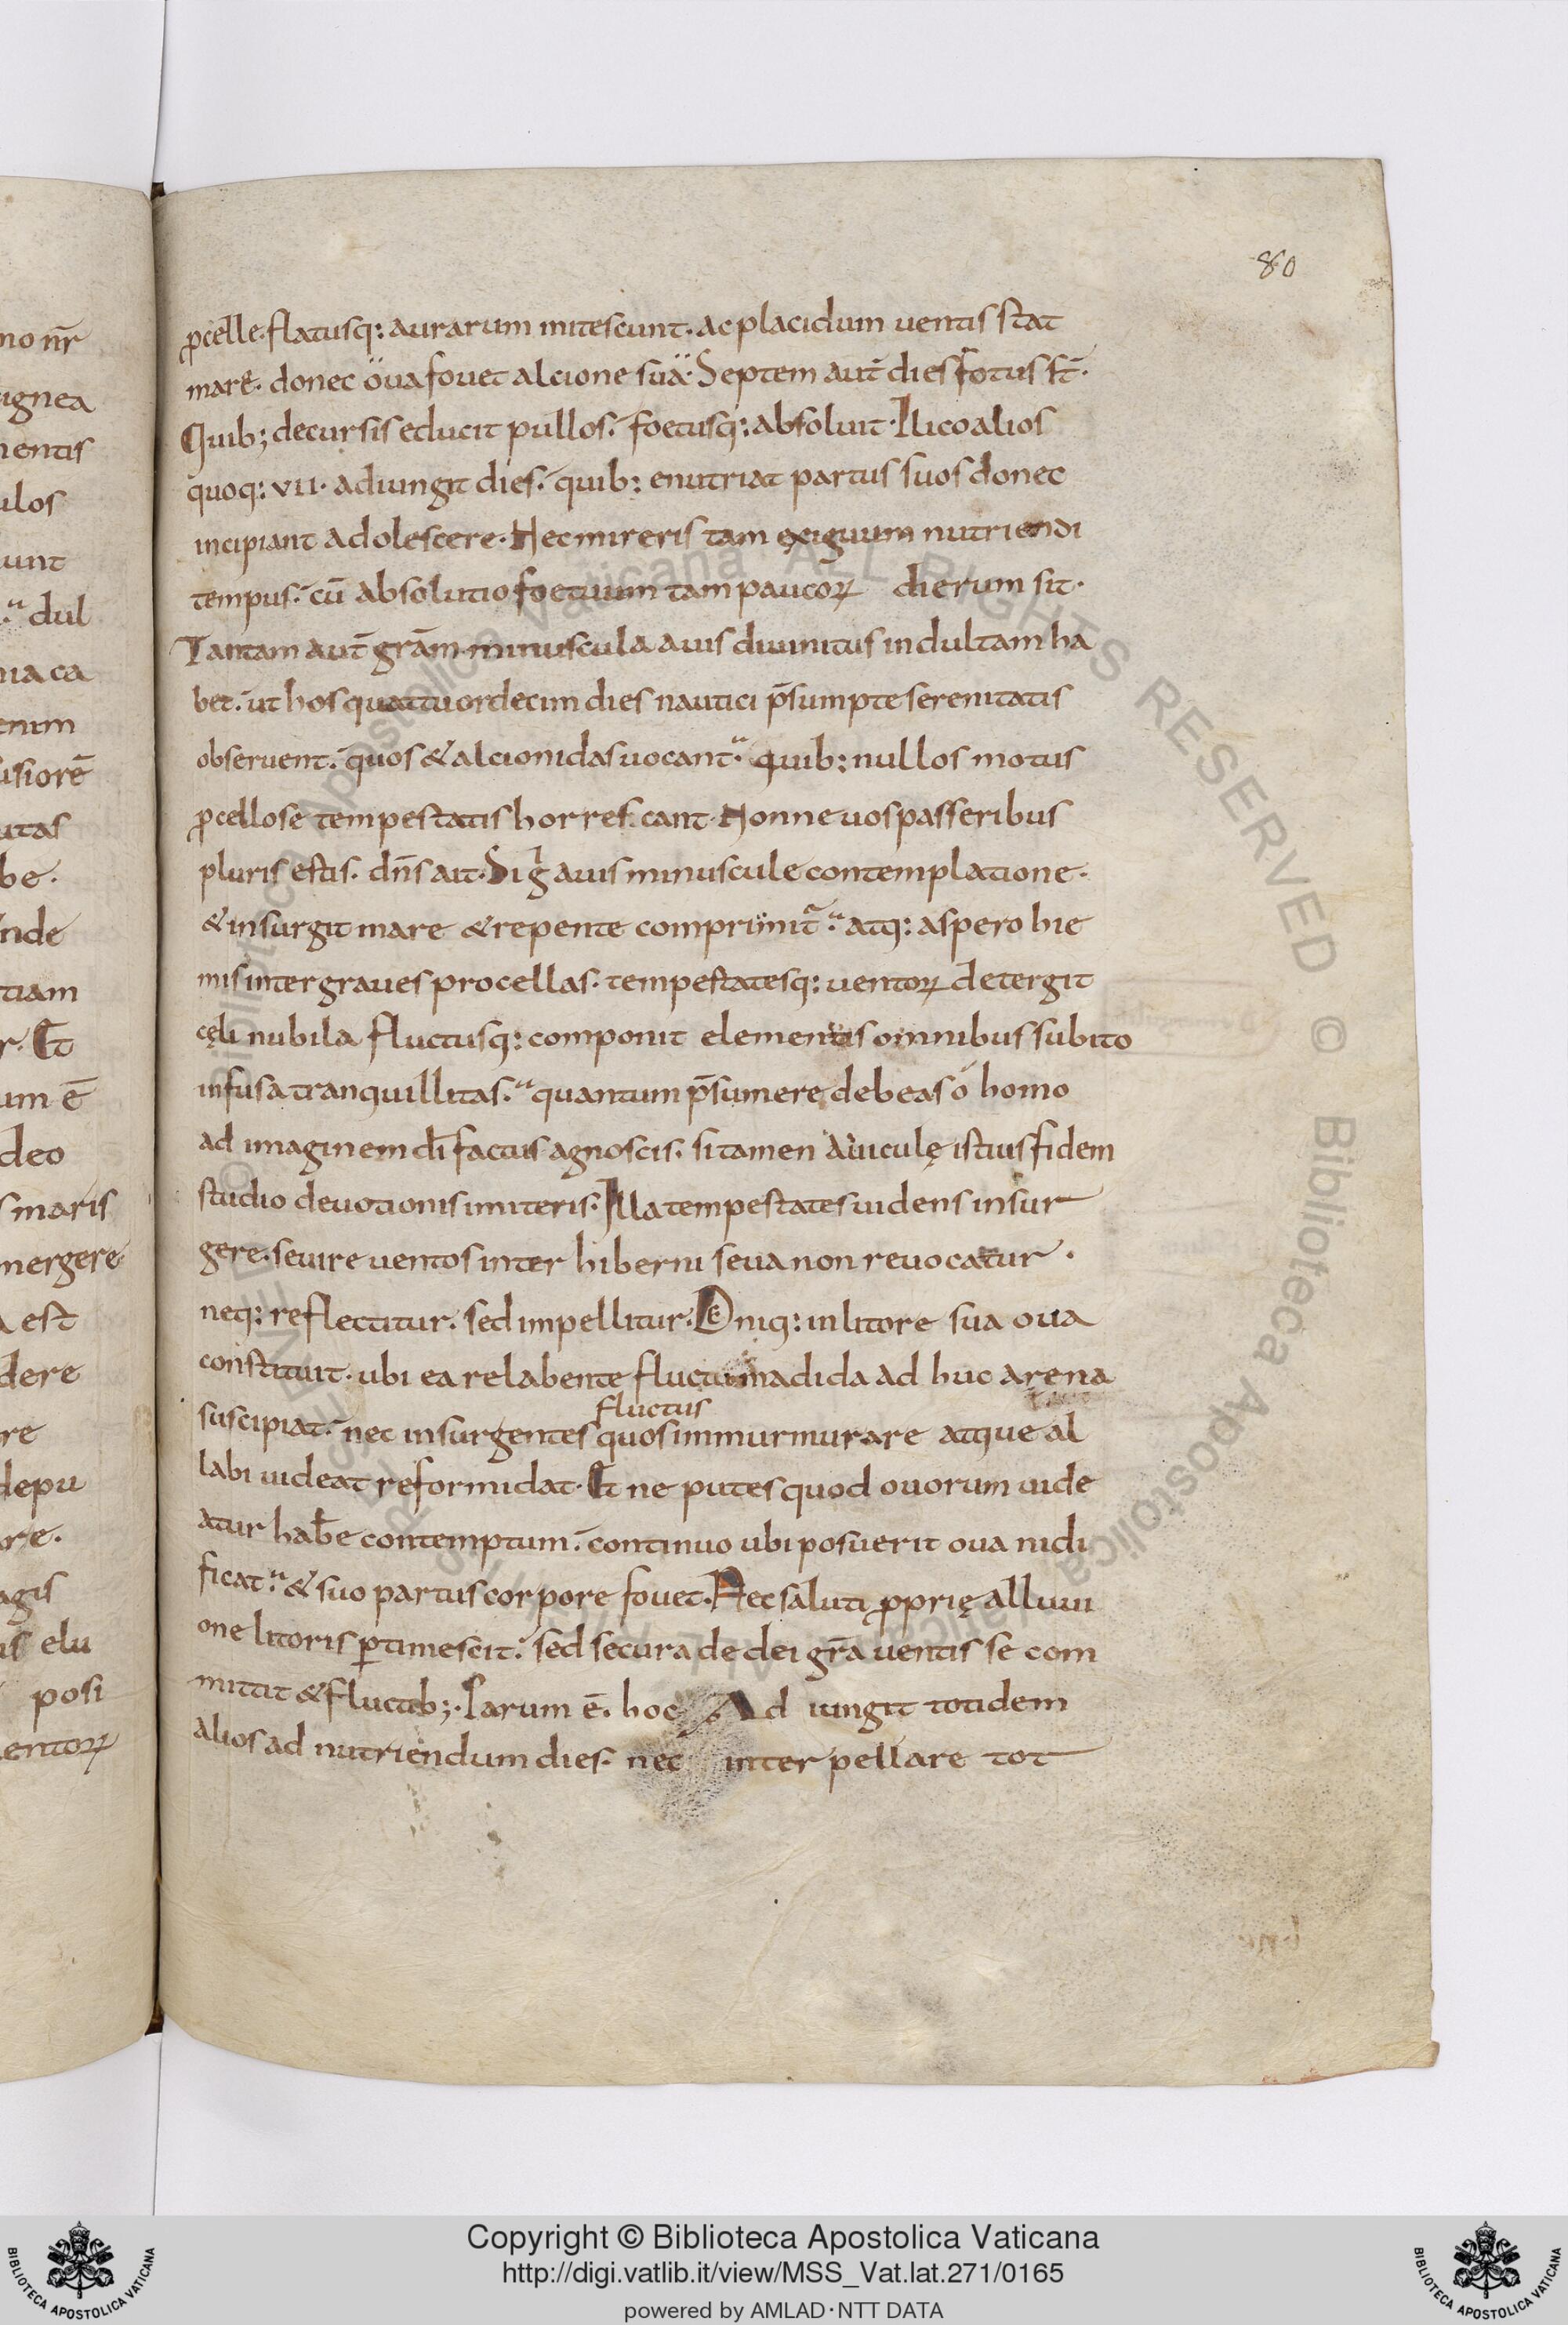 80
ꝓcelle. flatusq: aurarum mitescunt. ac placidum uentis stat
mare. donec oua fouet alcione sua. Septem aut̄ dies fotus st̄.
Quib; decursis educit pullos. foetusq: absoluit. Ilico alios
quoq: VII. adiungit dies. quib: enutriat partus suos donec
incipiant adolescere. Nec mireris tam exiguum nutriendi
tempus. cū absolutio foetuum tam paucoꝝ dierum sit.
Tantam aut̄ grām minuscula auis diuinitus indultam ha
bet. ut hos quattuordecim dies nautici p̄sumpte serenitatis
obseruent. quos & alcionidas uocant. quib: nullos motus
ꝓcellose tempestatis horrescant. Nonne uos passeribus
pluris estis. dn̄s ait. Si g auis minuscule contemplatione.
& insurgit mare & repente comprimit. atq: aspero hie
mis inter graues procellas. tempestatesq: uentoꝝ detergit
cęli nubila fluctusq: componit elementis omnibus subito
infusa tranquillitas. quantum p̄sumere debeas ó homo
ad imaginem dī factus agnoscis. si tamen auiculę istius fidem
studio deuotionis imiteris. Illa tempestates uidens insur
gere. seuire uentos inter hiberni seua non reuocatur.
neq: reflectitur. sed impellitur. Deniq: in litore sua oua
constituit. ubi ea relabente fluctu madida ad huc arena
fluctus
suscipiat. nec insurgentes quos immurmurare atque al
labi uideat reformidat. Et ne putes quod ouorum uide
atur hab̄e contemptum. continuo ubi posuerit oua nidi
ficat. & suo partus corpore fouet. Nec saluti ꝓprię alluui
one litoris ꝑtimescit. sed secura de dei grā uentis se com
mittit & fluctib;. Parum ē. hoc Ad iungit totidem
alios ad nutriendum dies. nec inter pellare tot
no nr̄
ignea
mentis
ulos
iunt
dul
nia ca
enim
usiorē
utas
be.
nde
tiam
r. Et
um ē
deo
s maris
mergere
a est
dere
re
depu
are.
agis
is elu
posi
entoꝝ
Copyright © Biblioteca Apostolica Vaticana
http://digi.vatlib.it/view/MSS_Vat.lat.271/0165
powered by AMLAD·NTT DATA
BIBLIOTECA APOSTOLICA VATICANA
BIBLIOTECA APOSTOLICA VATICANA